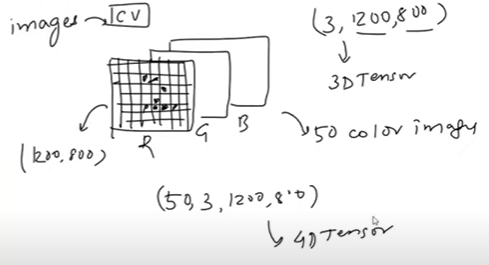 images → CV
(3, 1200, 800)
3D Tensor
R G B
(1200, 800)
50 color images
(50, 3, 1200, 800)
4D Tensor